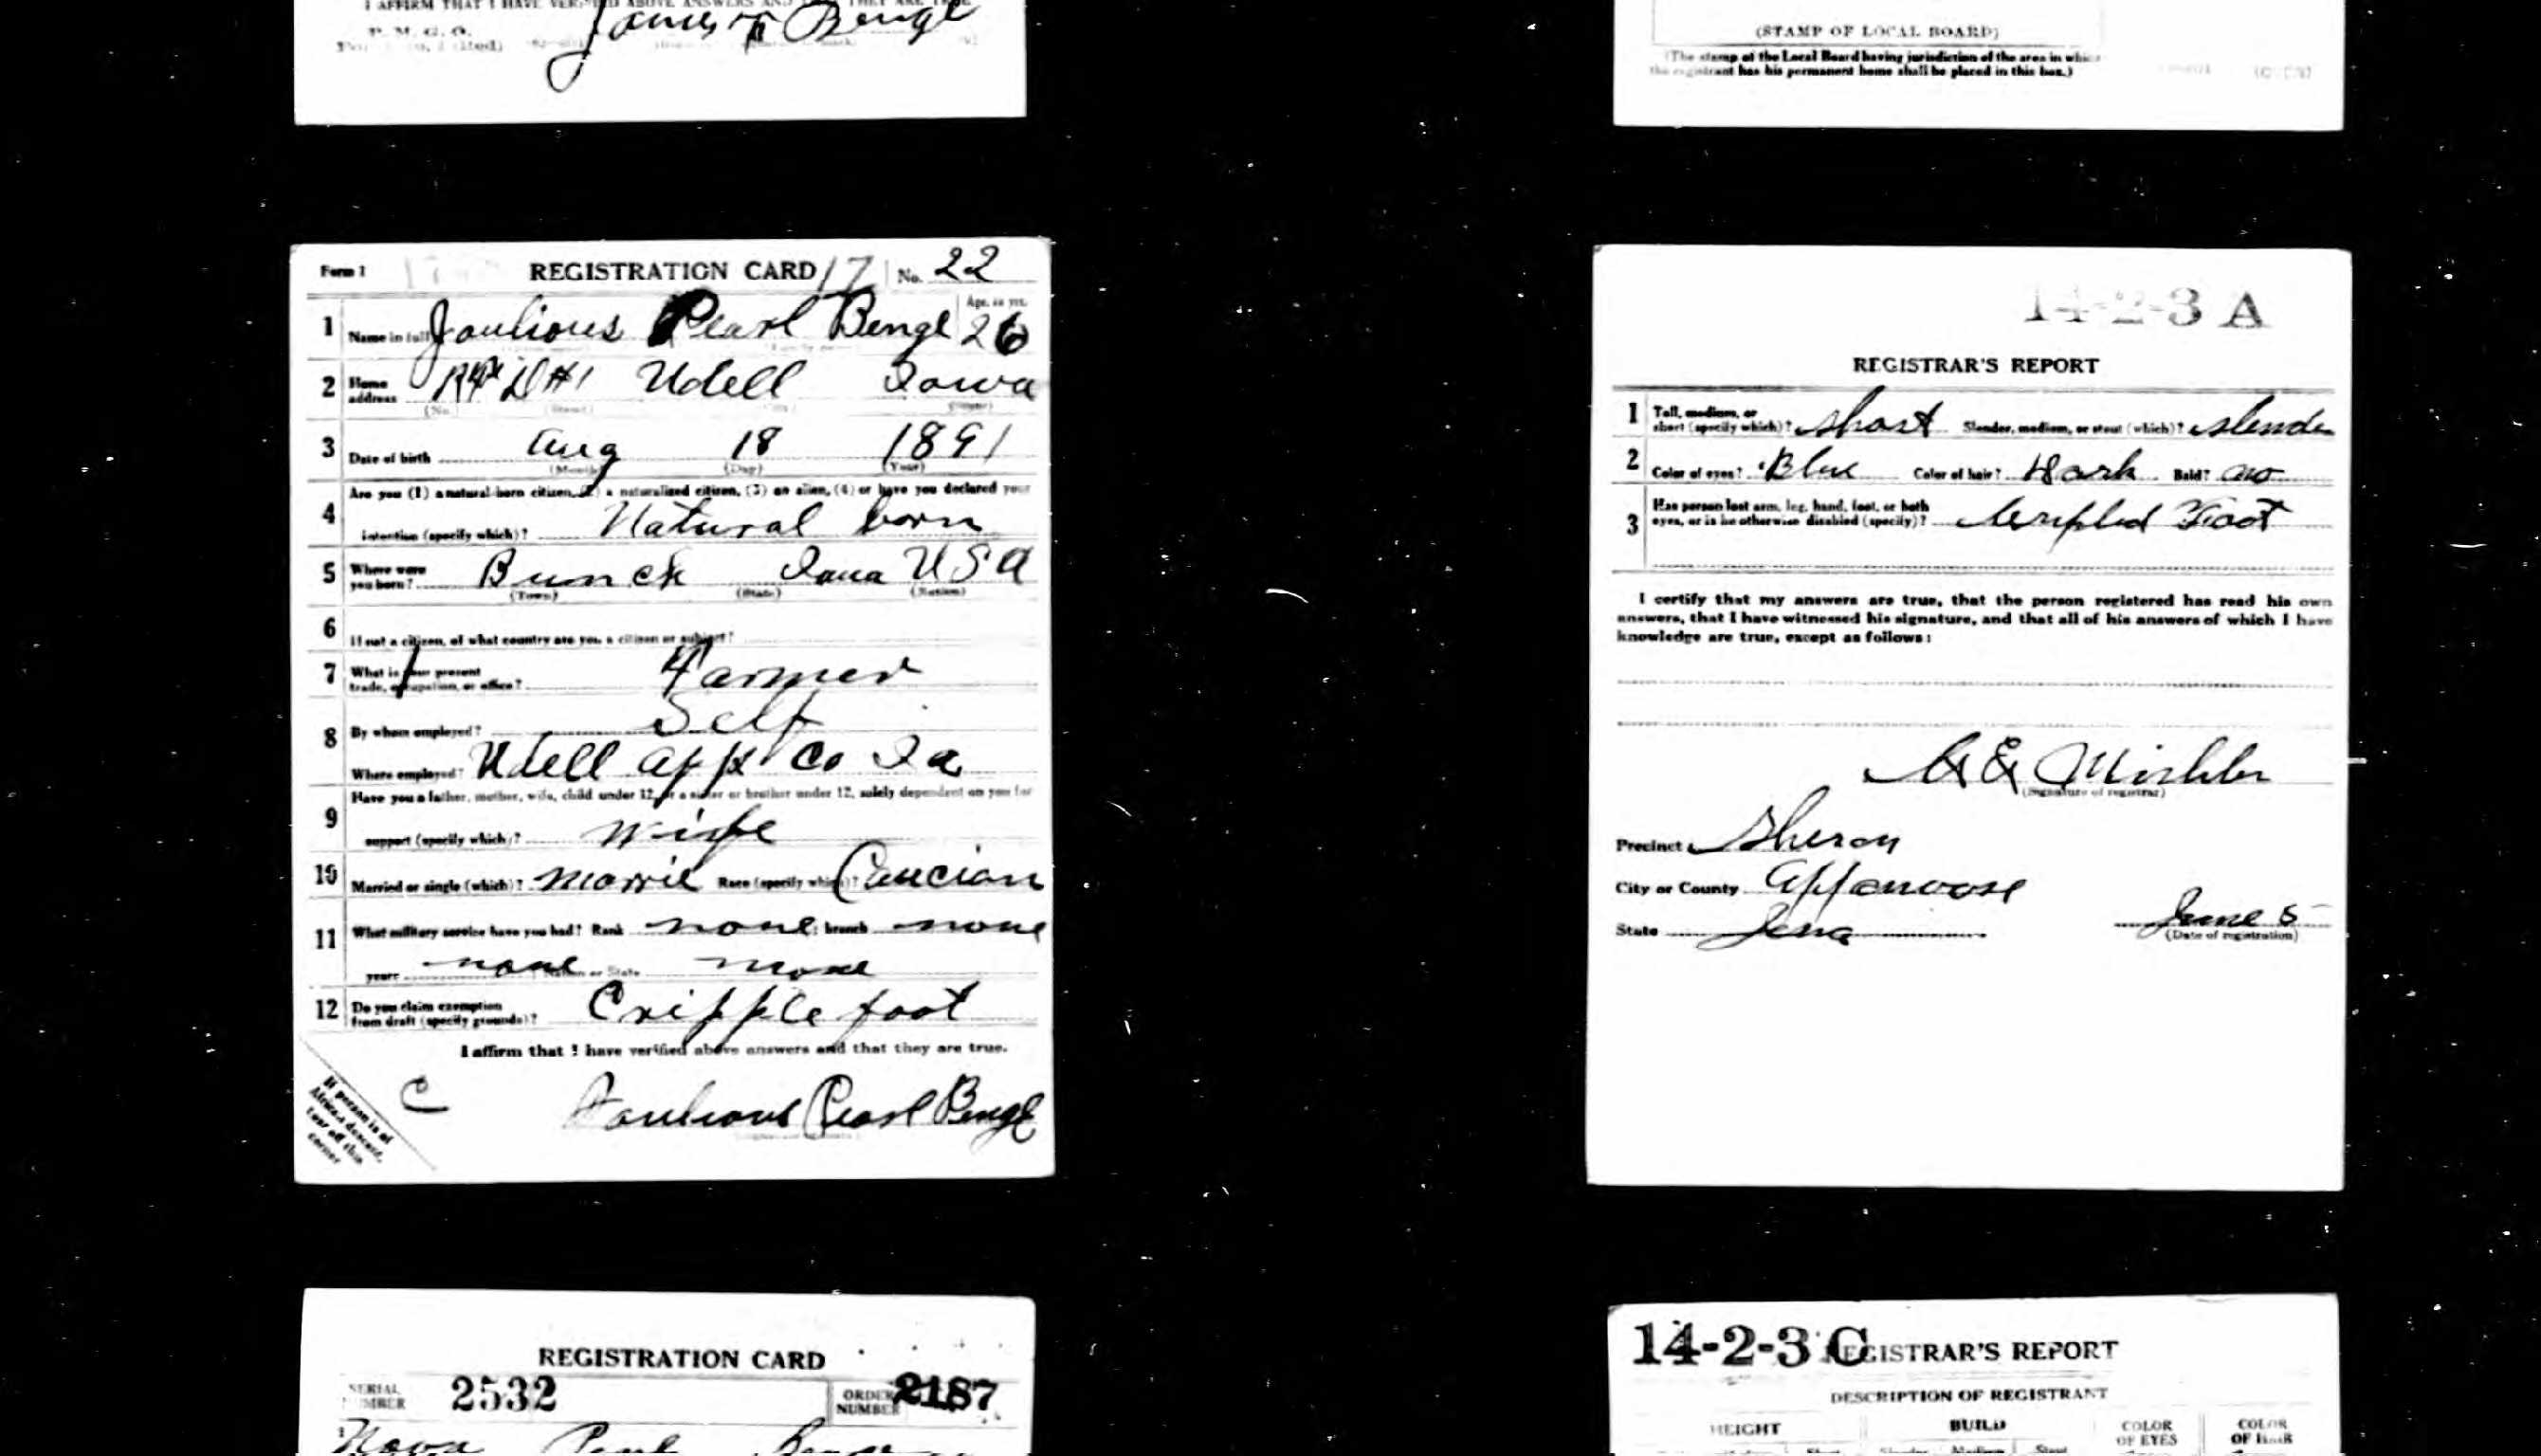 I AFFIRM THAT I HAVE VERIFIED ABOVE ANSWERS AND THEY ARE TRUE
P. M. G. O.
James Benge
(STAMP OF LOCAL BOARD)
(The stamp of the Local Board having jurisdiction of the area in which
the registrant has his permanent home shall be placed in this box.)
Form 1 REGISTRATION CARD 17 No. 22
Age, in yrs.
1 Name in full Joulious Pearl Benge 26
2 Home address RFD #1 Udell Iowa
(No.) (Street) (City) (State)
3 Date of birth Aug 18 1891
(Month) (Day) (Year)
Are you (1) a natural-born citizen, (2) a naturalized citizen, (3) an alien, (4) or have you declared your
4 intention (specify which)? Natural born
5 Where were you born? Bunch Iowa USA
(Town) (State) (Nation)
6 If not a citizen, of what country are you a citizen or subject?
7 What is your present trade, occupation, or office? Farmer
8 By whom employed? Self
Where employed? Udell App Co Ia
Have you a father, mother, wife, child under 12, or a sister or brother under 12, solely dependent on you for
9 support (specify which)? Wife
10 Married or single (which)? Marrie Race (specify which)? Caucian
11 What military service have you had? Rank none; branch none
years none Nation or State none
12 Do you claim exemption from draft (specify grounds)? Cripple foot
I affirm that I have verified above answers and that they are true.
C
Joulious Pearl Benge
If person is of
African descent,
tear off this
corner
14-2-3 A
REGISTRAR'S REPORT
1 Tall, medium, or short (specify which)? Short Slender, medium, or stout (which)? slender
2 Color of eyes? Blue Color of hair? Dark Bald? no
3 Has person lost arm, leg, hand, foot, or both eyes, or is he otherwise disabled (specify)? Crippled Foot
I certify that my answers are true, that the person registered has read his own
answers, that I have witnessed his signature, and that all of his answers of which I have
knowledge are true, except as follows:
E Mishler
(Signature of registrar)
Precinct Sharon
City or County Appanoose
State Iowa June 5
(Date of registration)
REGISTRATION CARD
SERIAL NUMBER 2532 ORDER NUMBER 2187
14-2-3 C REGISTRAR'S REPORT
DESCRIPTION OF REGISTRANT
HEIGHT BUILD COLOR OF EYES COLOR OF HAIR
Short Slender Medium Stout